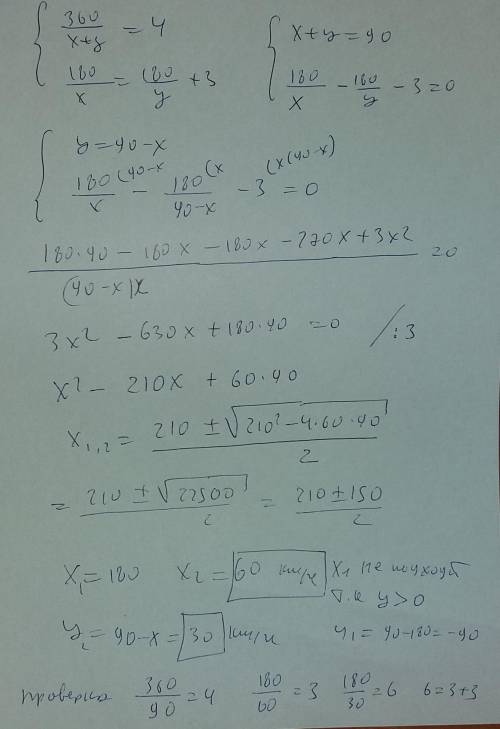 { 360/(x+y) = 4     { x+y=90
180/x = 180/y + 3     180/x − 180/y − 3 = 0
{ y=90−x
180/x (90−x − 180/(90−x) (x − 3 (x(90−x) = 0
(180·90 − 180x − 180x − 270x + 3x²)/((90−x)x) = 0
3x² − 630x + 180·90 = 0 /:3
x² − 210x + 60·90
x₁,₂ = (210 ± √(210² − 4·60·90))/2
= (210 ± √22500)/2 = (210 ± 150)/2
x₁ = 180   x₂ = 60 км/ч   x₁ не подходит
т.к y>0
y₂ = 90−x = 30 км/ч   y₁ = 90−180 = −90
проверка 360/90 = 4   180/60 = 3   180/30 = 6   6=3+3